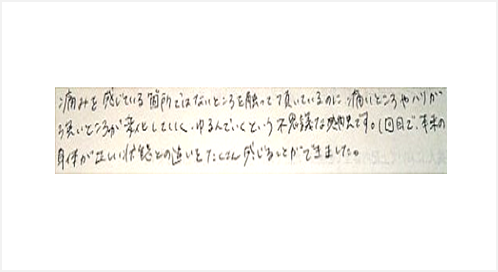 痛みを感じている箇所ではないところを触って頂いているのに、痛いところやハリが
強いところが変化していく、ゆるんでいくという不思議な感覚です。1回目で、本来の
身体が正しい状態との違いをたくさん感じることができました。